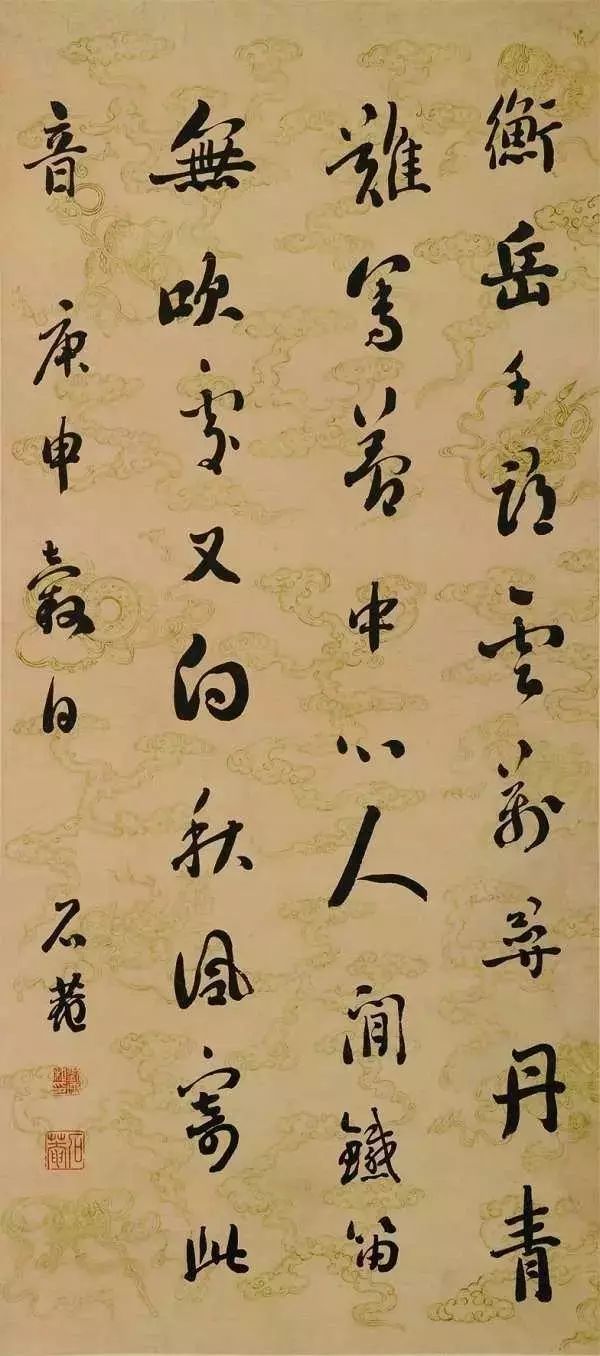 衡岳千頃雲萬尋丹青
難寫箇中心人間鐵笛
無吹處又向秋風寄此
音 庚申穀日 石菴
石菴